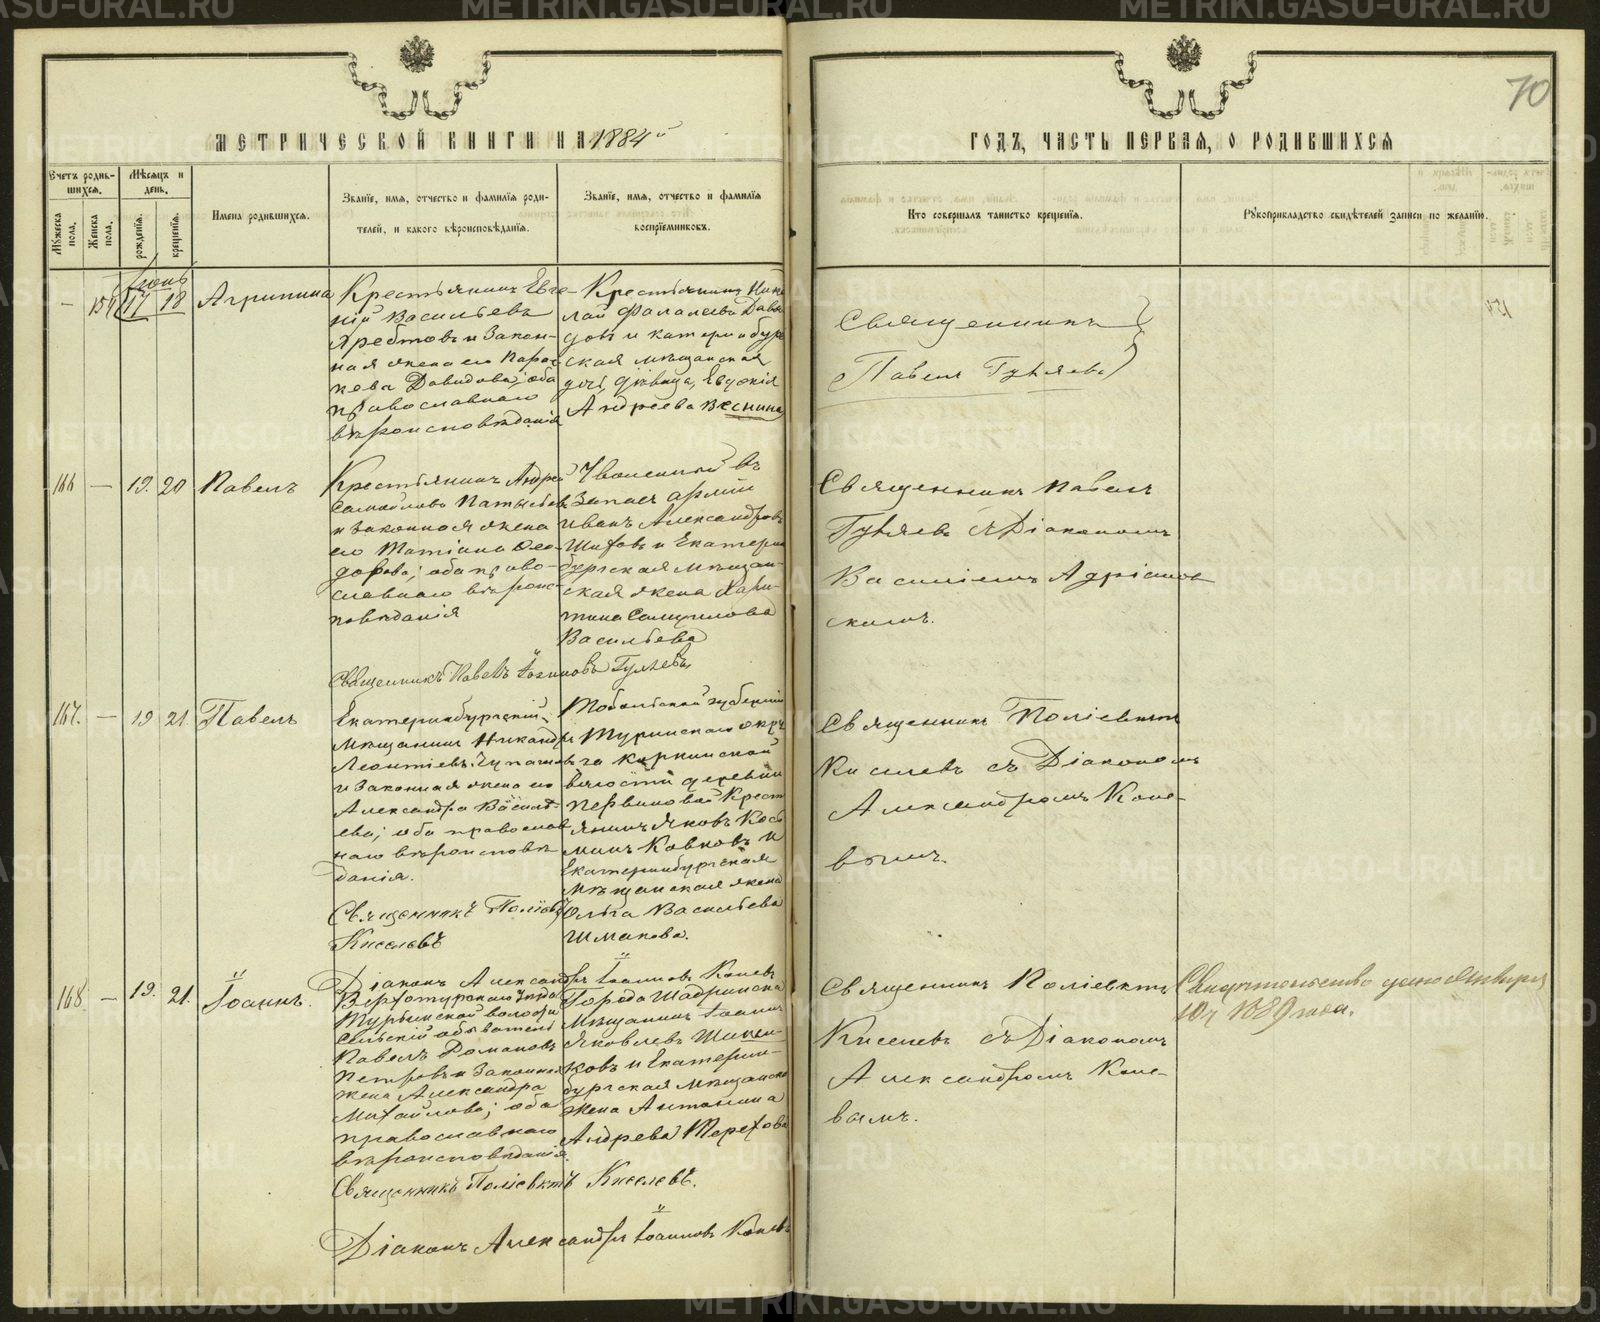 70
МЕТРИЧЕСКОЙ КНИГИ НА 1884й
ГОДЪ, ЧАСТЬ ПЕРВАЯ, О РОДИВШИХСЯ
Счетъ родившихся.
Мужеска пола.
Женска пола.
Мѣсяцъ и день.
рожденія.
крещенія.
Имена родившихся.
Званіе, имя, отчество и фамилія роди-
телей, и какого вѣроисповѣданія.
Званіе, имя, отчество и фамилія
воспріемниковъ.
Кто совершалъ таинство крещенія.
Рукоприкладство свидѣтелей записи по желанію.
Іюнь
— 17 18
Агрипина
Крестьянинъ Евге-
ній Васильевъ
и Закон-
ная жена его Парас-
кева Давидова; оба
православнаго
вѣроисповѣданія
Крестьянинъ Нико
лай Фалалеевъ Давы
довъ и Катеринбур
ская мѣщанская
дочь, дѣвица, Евдокія
Андреева Веснина
Священникъ
Павелъ Гуляевъ
166 — 19. 20
Павелъ
Крестьянинъ Андрей
Самойловъ
и законная жена
его Татіана Ѳео-
дорова; оба право-
славнаго вѣроис-
повѣданія
Уволенный въ
Запасъ арміи
Иванъ Александровъ
Шиховъ и Екатерин
бургская мѣщан-
ская жена Хари-
тина
Васильева
Священникъ Павелъ Іоанновъ Гуляевъ
Священникъ Павелъ
Гуляевъ съ Діакономъ
Василіемъ Адріанов
скимъ.
167. — 19 21.
Павелъ
Екатеринбургскій
Мѣщанинъ Никандръ
Леонтіевъ
и Законная жена его
Александра Василь-
ева; оба православ
наго вѣроисповѣ
данія.
Священникъ Поліевктъ
Киселевъ
Тобольской губерніи
Туринскаго окру
га Куркинской
волости деревни
Первиновой Кресть
янинъ Яковъ Козь
минъ Ковковъ и
Екатеринбургская
Мѣщанская жена
Ольга Васильева
Шмакова.
Священникъ Поліевктъ
Киселевъ съ Діакономъ
Александромъ Коне-
вымъ.
168 — 19. 21.
Іоаннъ.
Діаконъ Александръ Іоанновъ Коневъ
Верхотурскаго уѣзда
волости
Сельскій обыватель
Павелъ Романовъ
Петровъ и Законная
жена Александра
Михайлова; оба
православнаго
вѣроисповѣданія.
Города Шадринска
Мѣщанинъ Іоаннъ
Яковлевъ Шикен-
ковъ и Екатерин-
бургская мѣщанска
жена Антонина
Андреева Терехова
Священникъ Поліевктъ Киселевъ.
Діаконъ Александръ Іоанновъ Коневъ
Священникъ Поліевктъ
Киселевъ съ Діакономъ
Александромъ Коне-
вымъ.
Свидѣтельство дано Января
10ч 1889 года.
METRIKI.GASO-URAL.RU